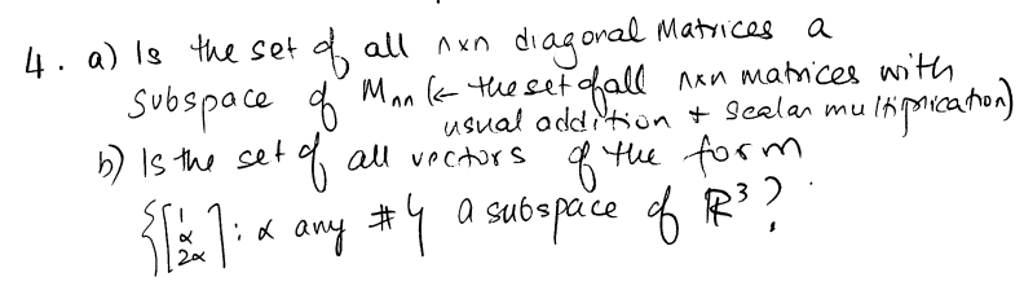 4. a) Is the set of all nxn diagonal Matrices a
subspace of Mnn (← the set of all nxn matrices with
usual addition + Scalar multiplication)
b) Is the set of all vectors of the form
{[1 α 2α] : α any #} a subspace of ℝ³?